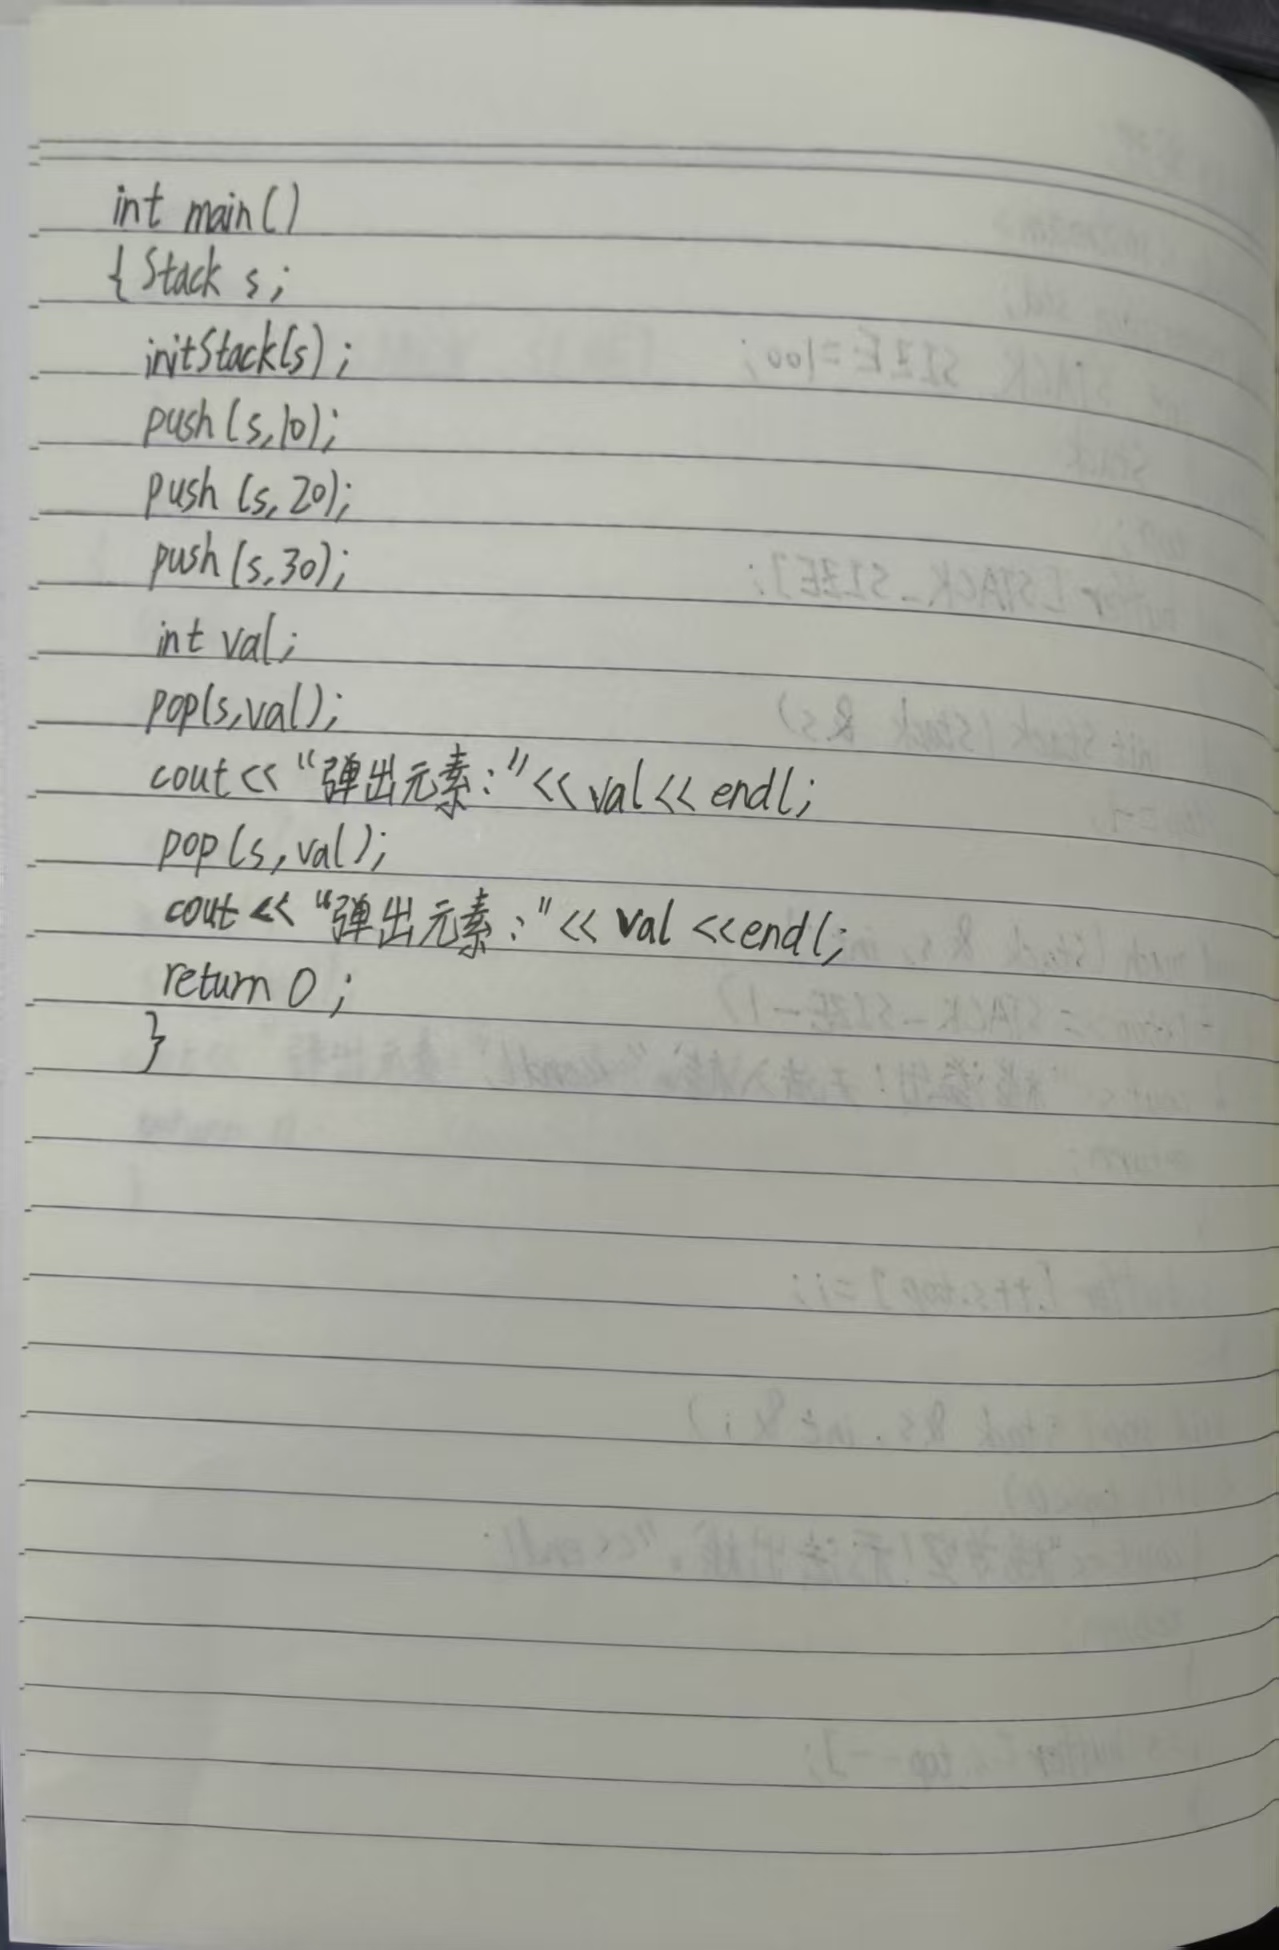 int main()
{ Stack s;
initStack(s);
push(s,10);
push(s,20);
push(s,30);
int val;
pop(s,val);
cout<<“弹出元素:”<<val<<endl;
pop(s,val);
cout<<“弹出元素:"<<val<<endl;
return 0;
}